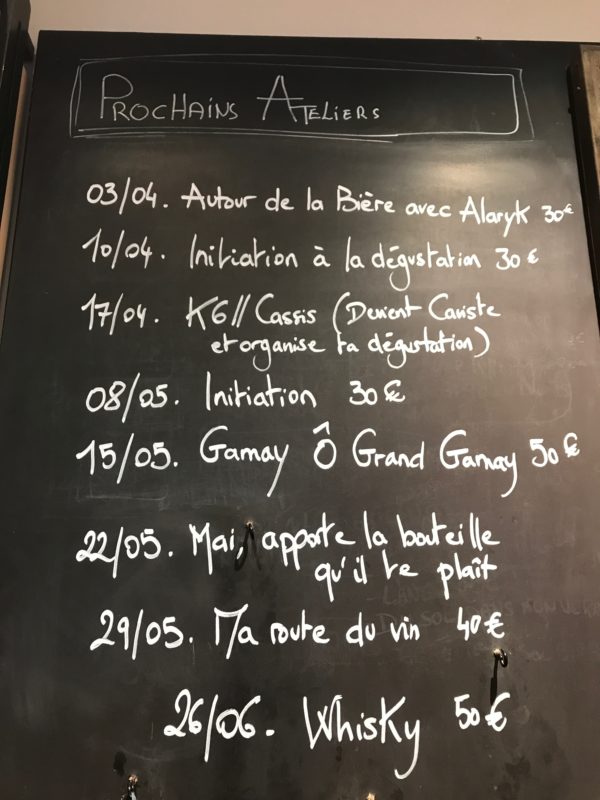 PROCHAINS ATELIERS
03/04. Autour de la Bière avec Alaryk 30€
10/04. Initiation à la dégustation 30€
17/04. K6// Cassis (Devient Caviste
et organise ta dégustation)
08/05. Initiation 30€
15/05. Gamay Ô Grand Gamay 50€
22/05. Mai, apporte la bouteille
qu'il te plaît
29/05. Ma route du vin 40€
26/06. Whisky 50€